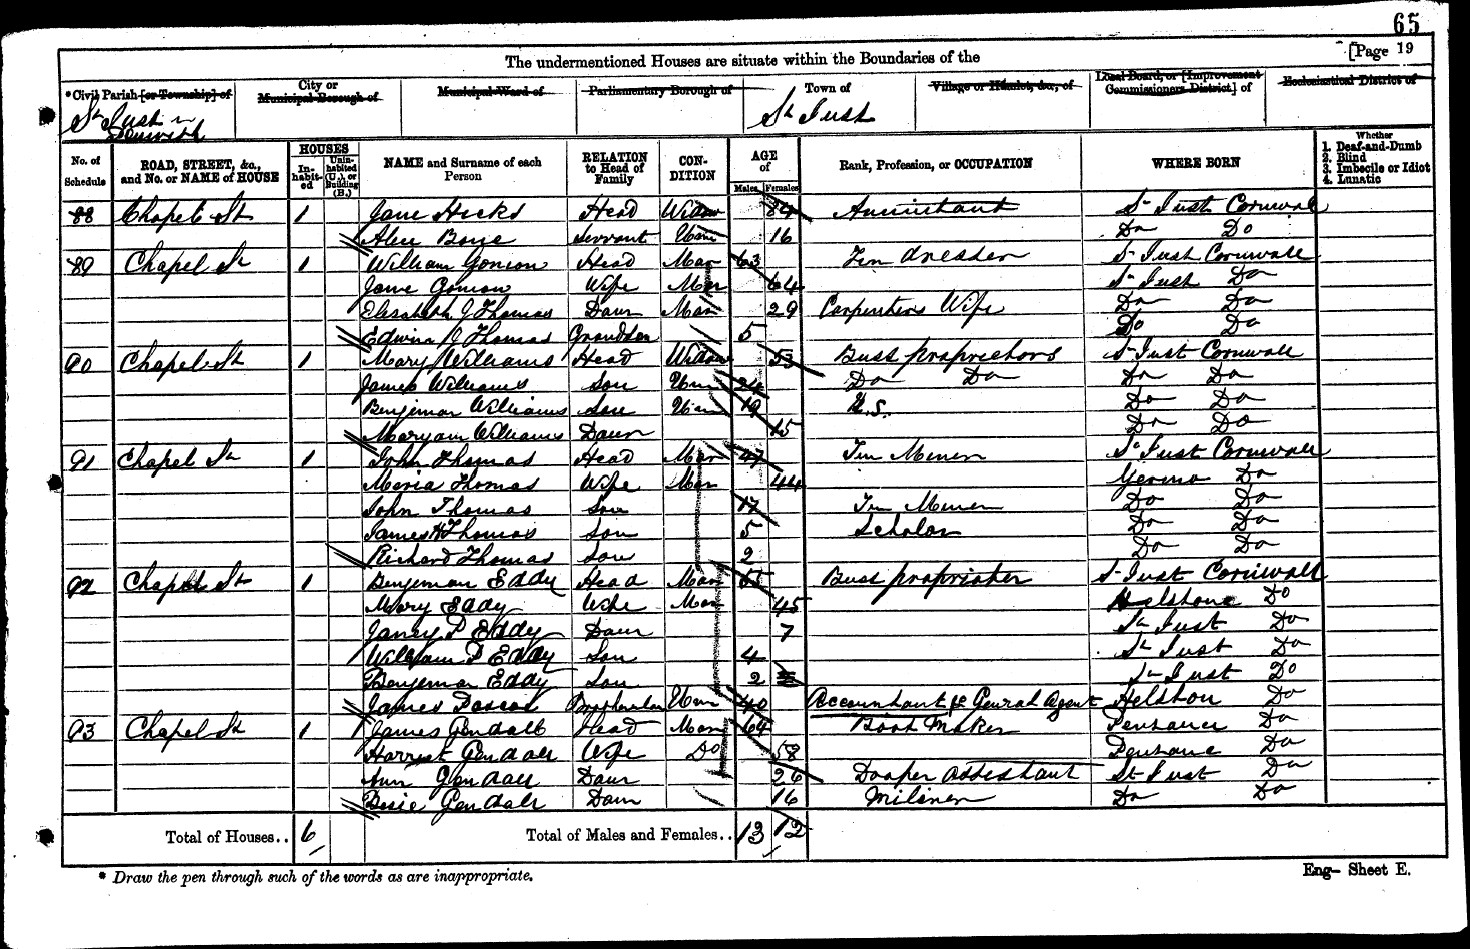 65
[Page 19
The undermentioned Houses are situate within the Boundaries of the
*Civil Parish [or Township] of
City or Municipal Borough of
Municipal Ward of
Parliamentary Borough of
Town of
Village or Hamlet, &c., of
Local Board, or [Improvement Commissioners District] of
Ecclesiastical District of
St Just in Penwith
St Just
No. of Schedule
ROAD, STREET, &c., and No. or NAME of HOUSE
HOUSES
In-habit-ed
Unin-habited (U.), or Building (B.)
NAME and Surname of each Person
RELATION to Head of Family
CON-DITION
AGE of
Males
Females
Rank, Profession, or OCCUPATION
WHERE BORN
Whether
1. Deaf-and-Dumb
2. Blind
3. Imbecile or Idiot
4. Lunatic
88 Chapel St 1 Jane Hicks Head Widow 84 Annuitant St Just Cornwall
Servant Unm 16 Do Do
89 Chapel St 1 William Head Mar 63 Tin dresser St Just Cornwall
Jane Wife Mar 64 St Just Do
Elisabeth J Thomas Daur Mar 29 Carpenters Wife Do Do
Edwin J Thomas Grandson 5 Do Do
90 Chapel St 1 Mary Williams Head Widow 53 Buss proprietors St Just Cornwall
James Williams Son Unm 24 Do Do Do Do
Benjeman Williams Son Unm 19 Do Do
Maryann Williams Daur 15 Do Do
91 Chapel St 1 John Thomas Head Mar 47 Tin Miner St Just Cornwall
Maria Thomas Wife Mar 44 Do
John Thomas Son 17 Tin Miner Do Do
James H Thomas Son 5 Scholar Do Do
Richard Thomas Son 2 Do Do
92 Chapel St 1 Benjeman Eddy Head Mar 55 Buss propriater St Just Cornwall
Mary Eddy Wife Mar 45 Helstone Do
Janey P Eddy Daur 7 St Just Do
William P Eddy Son 4 St Just Do
Benjeman Eddy Son 2 St Just Do
James Pascoe Unm 40 Accountant & General Agent Helston Do
93 Chapel St 1 James Gendall Head Mar 64 Boot Maker Penzance Do
Harriet Gendall Wife Do 58 Penzance Do
Ann Gendall Daur 26 Draper Assistant St Just Do
Besie Gendall Daur 16 Miliner Do Do
Total of Houses.. 6
Total of Males and Females.. 13 12
* Draw the pen through such of the words as are inappropriate.
Eng— Sheet E.